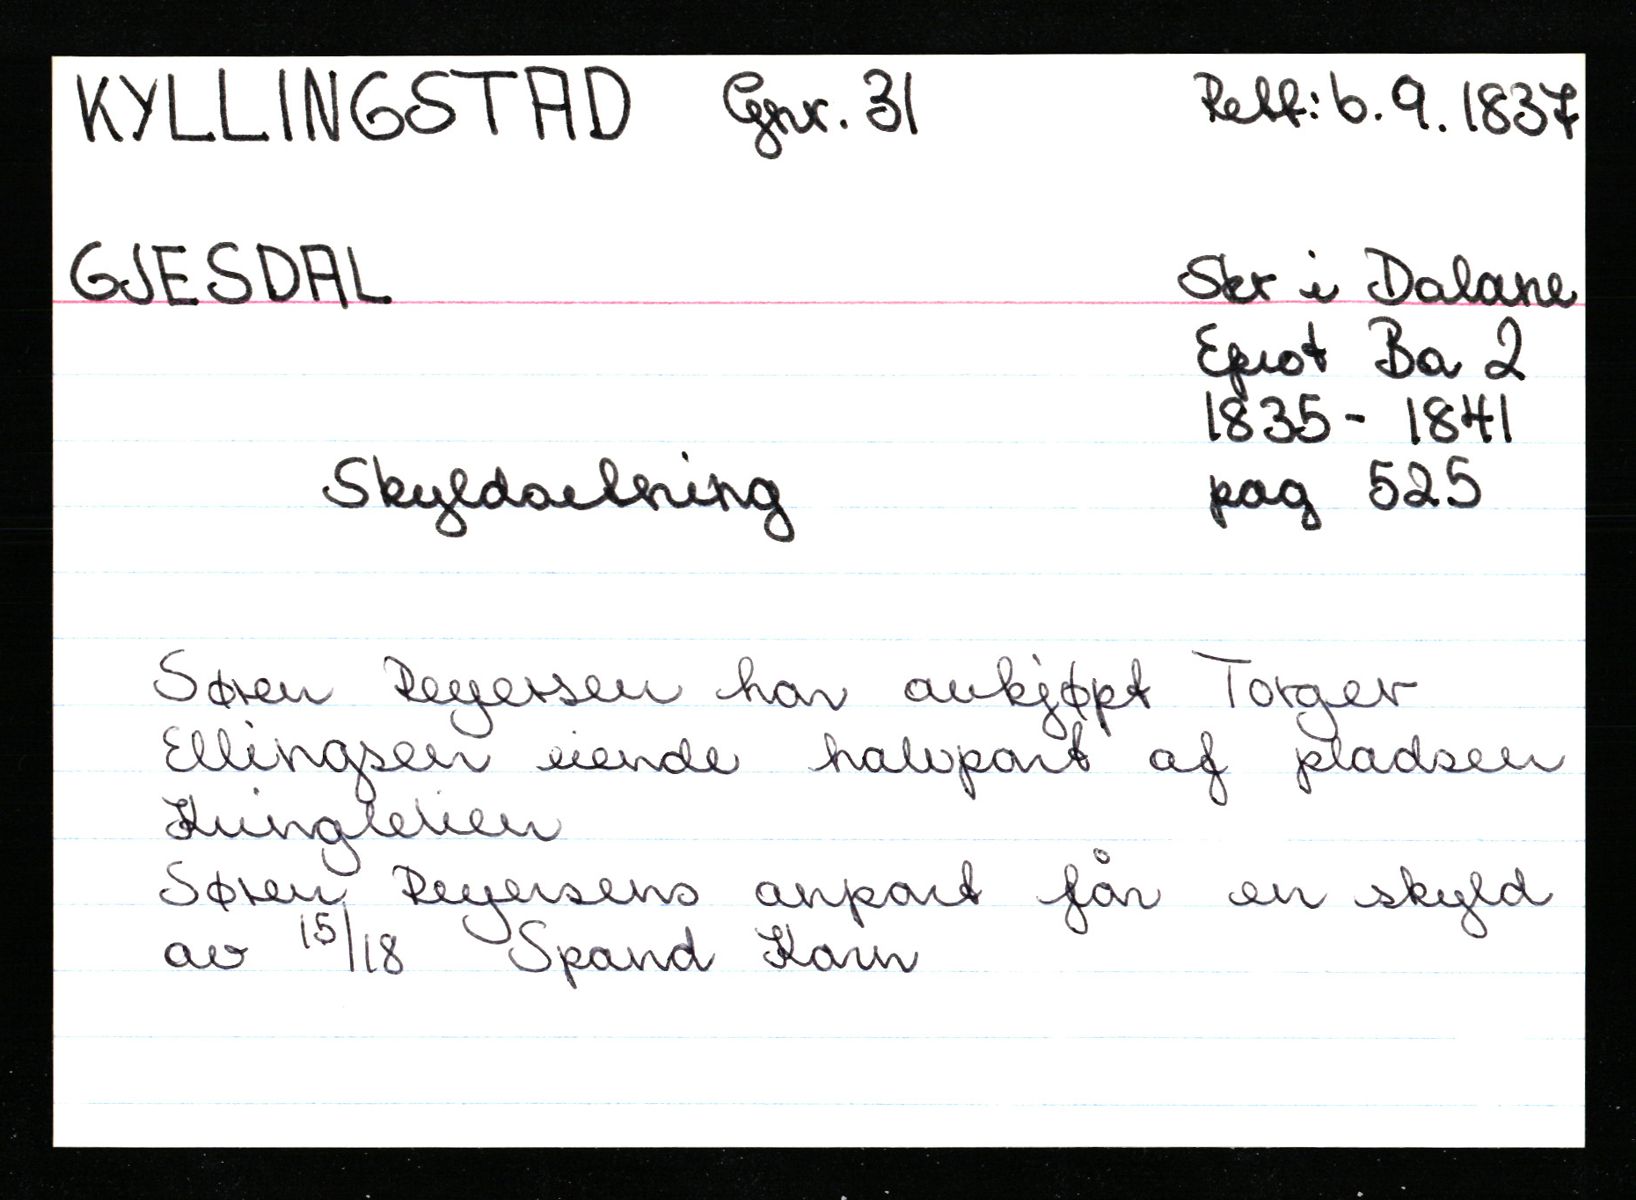 KYLLINGSTAD Gnr. 31 Reff: 6.9.1837
GJESDAL Skr i Dalane
Eprot Ba 2
1835 - 1841
Skyldsetning pag 525
Søren Reyersen har avkjøpt Torger
Ellingsen eiende halvpart af pladsen
Søren Reyersens anpart får en skyld
av 15/18 Spand Korn